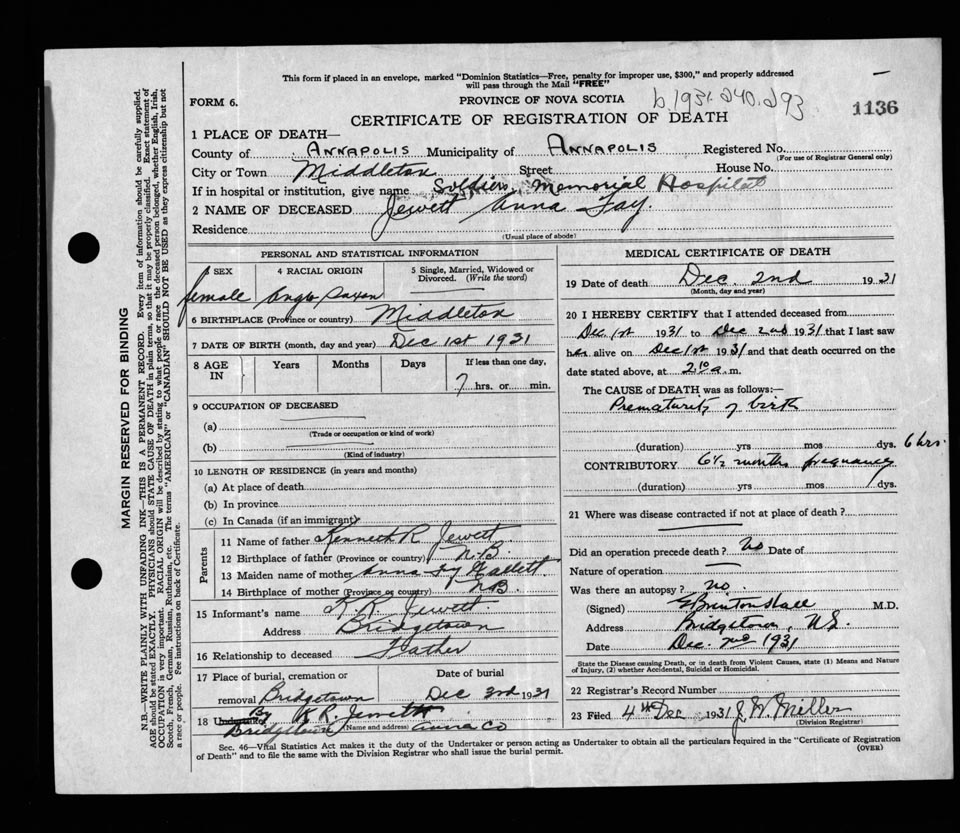 This form if placed in an envelope, marked "Dominion Statistics—Free, penalty for improper use, $300," and properly addressed
will pass through the Mail "FREE"
FORM 6.
PROVINCE OF NOVA SCOTIA
b.1931.240.293
1136
CERTIFICATE OF REGISTRATION OF DEATH
1 PLACE OF DEATH—
County of ANNAPOLIS Municipality of ANNAPOLIS Registered No.
(For use of Registrar General only)
City or Town Middleton Street House No.
If in hospital or institution, give name Soldiers Memorial Hospital
2 NAME OF DECEASED Jewett Anna Fay.
Residence
(Usual place of abode)
PERSONAL AND STATISTICAL INFORMATION
3 SEX 4 RACIAL ORIGIN 5 Single, Married, Widowed or Divorced. (Write the word)
female Anglo Saxon
6 BIRTHPLACE (Province or country) Middleton
7 DATE OF BIRTH (month, day and year) Dec 1st 1931
8 AGE IN Years Months Days If less than one day,
7 hrs. or min.
9 OCCUPATION OF DECEASED
(a)
(Trade or occupation or kind of work)
(b)
(Kind of industry)
10 LENGTH OF RESIDENCE (in years and months)
(a) At place of death
(b) In province
(c) In Canada (if an immigrant)
Parents
11 Name of father Kenneth R Jewett
12 Birthplace of father (Province or country) N.B.
13 Maiden name of mother Anna
14 Birthplace of mother (Province or country) N.B.
15 Informant's name K R Jewett.
Address Bridgetown
16 Relationship to deceased Father
17 Place of burial, cremation or removal Bridgetown
Date of burial Dec 3rd 1931
18 Undertaker By K R. Jewett
Bridgetown (Name and address) Anna Co
MEDICAL CERTIFICATE OF DEATH
19 Date of death Dec. 2nd 1931
(Month, day and year)
20 I HEREBY CERTIFY that I attended deceased from
Dec 1st 1931 to Dec 2nd 1931 that I last saw
her alive on Dec 1st 1931 and that death occurred on the
date stated above, at 2 10 a. m.
The CAUSE of DEATH was as follows:—
Prematurity of birth
(duration) yrs mos dys. 6 hrs.
CONTRIBUTORY 6½ months pregnancy
(duration) yrs mos dys.
21 Where was disease contracted if not at place of death?
Did an operation precede death? No Date of
Nature of operation
Was there an autopsy? no.
(Signed) M.D.
Address Bridgetown, N.S.
Date Dec. 2nd 1931
State the Disease causing Death, or in death from Violent Causes, state (1) Means and Nature
of Injury, (2) whether Accidental, Suicidal or Homicidal.
22 Registrar's Record Number
23 Filed 4th Dec 1931 J. W. Miller
(Division Registrar)
Sec. 46—Vital Statistics Act makes it the duty of the Undertaker or person acting as Undertaker to obtain all the particulars required in the "Certificate of Registration
of Death" and to file the same with the Division Registrar who shall issue the burial permit.
(OVER)
MARGIN RESERVED FOR BINDING
N.B.—WRITE PLAINLY WITH UNFADING INK—THIS IS A PERMANENT RECORD. Every item of information should be carefully supplied.
AGE should be stated EXACTLY. PHYSICIANS should STATE CAUSE OF DEATH in plain terms, so that it may be properly classified. Exact statement of
OCCUPATION is very important. RACIAL ORIGIN will be described by stating to what people or race the deceased person belonged, whether English, Irish,
Scotch, French, German, Russian, Ruthenian, etc. The terms "AMERICAN" or "CANADIAN" SHOULD NOT BE USED as they express citizenship but not
a race or people. See instructions on back of Certificate.